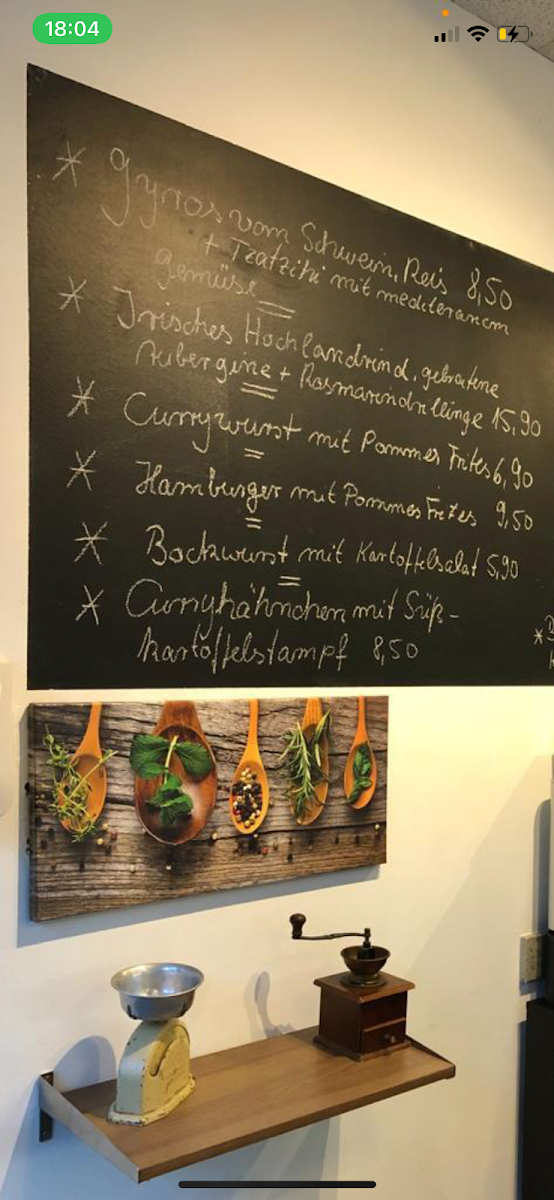 18:04
* Gyros vom Schwein, Reis 8,50
+ Tzatziki mit mediteranem
gemüse
* Irisches Hochlandrind, gebratene
Aubergine + Rosmarindrillinge 15,90
* Currywurst mit Pommes Frites 6,90
* Hamburger mit Pommes Frites 9,50
* Bockwurst mit Kartoffelsalat 5,90
* Curryhähnchen mit Süß-
kartoffelstampf 8,50
*